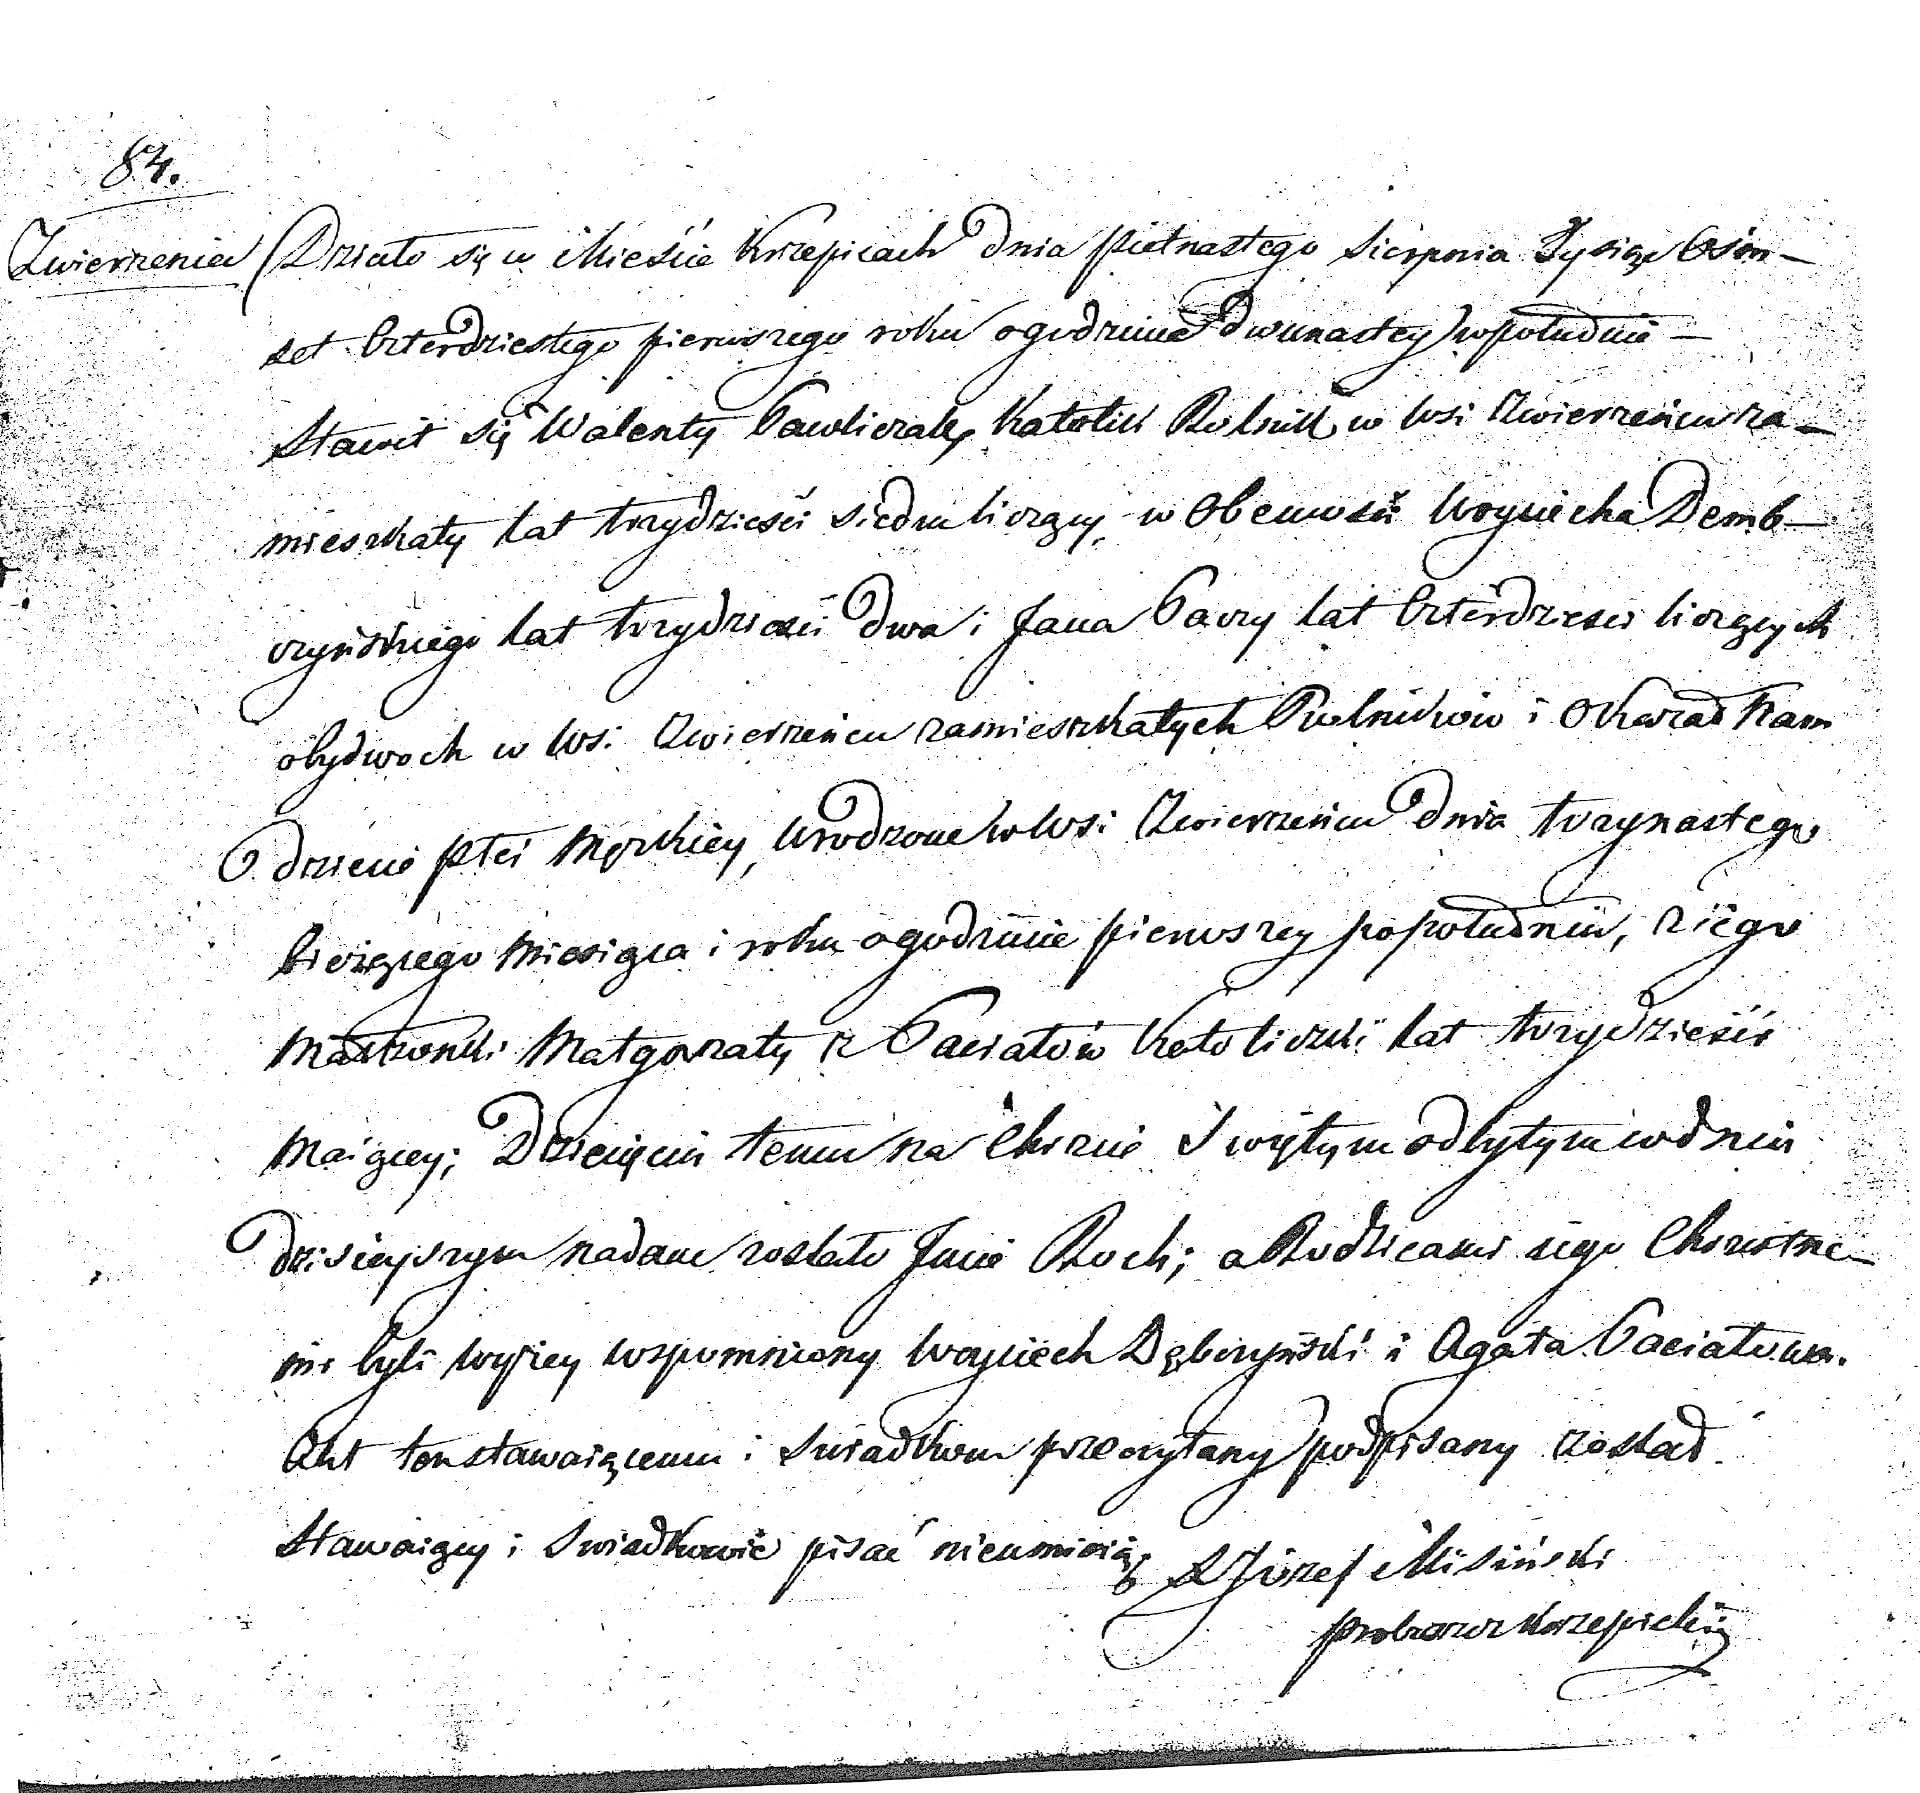 84.
Zwierzeniec Działo się w Mieście Krzepicach dnia piętnastego Sierpnia Tysiąc Ośm-
set Czterdziestego pierwszego roku o godzinie dwunastey w południe —
Stawił się Walenty Pawliczak, Katolik Rolnik w Wsi Zwierzeńcu za-
mieszkały lat trzydzieści siedm liczący, w obecności Woyciecha Demb-
czyńskiego lat trzydzieści dwa i Jana Paczy lat Czterdzieści liczących
obydwoch w Wsi Zwierzeńcu zamieszkałych Rolników i okazał Nam
dziecie płci Męzkiey, urodzone w Wsi Zwierzeńcu dnia trzynastego
bieżącego Miesiąca i roku o godzinie pierwszey popołudniu, z iego
Małżonki Małgorzaty z Paciatów Katoliczki lat trzydzieści
Maiącey; Dziecięciu temu na Chrzcie Świętym odbytym w dniu
dzisieyszym nadane zostało Imie Roch; a Rodzicami iego Chrzestne-
mi byli wyżey wspomniony Woyciech Dębczyński i Agata Paciatowa.
Akt ten stawaiącemu i Swiadkom przeczytany podpisany został
Stawaiący i Swiadkowie pisać nieumieią
X Józef Misiński
Proboszcz Krzepicki